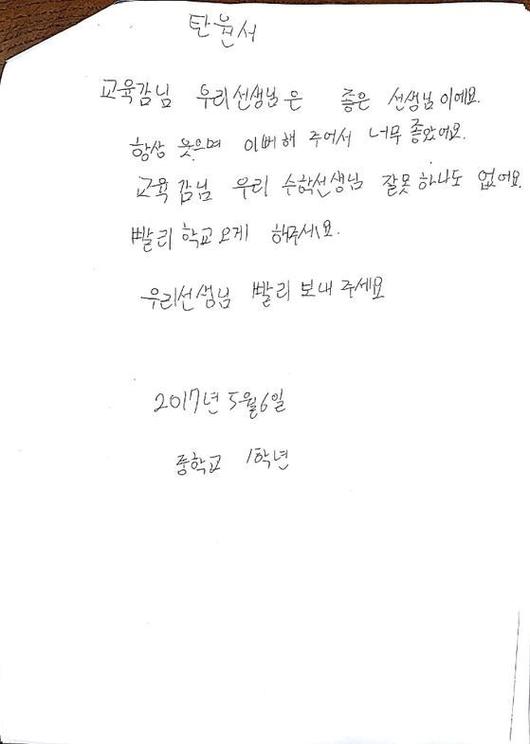 탄원서
교육감님 우리선생님은 좋은 선생님이에요.
항상 웃으며 이뻐해 주어서 너무좋았어요.
교육감님 우리 수학선생님 잘못하나도 없어요.
빨리학교오게 해주세요.
우리선생님 빨리 보내주세요
2017년 5월6일
중학교 1학년